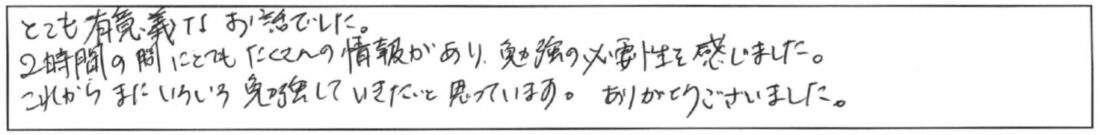 とても有意義なお話でした。
2時間の間にとてもたくさんの情報があり、勉強の必要性を感じました。
これからまたいろいろ勉強していきたいと思っています。 ありがとうございました。